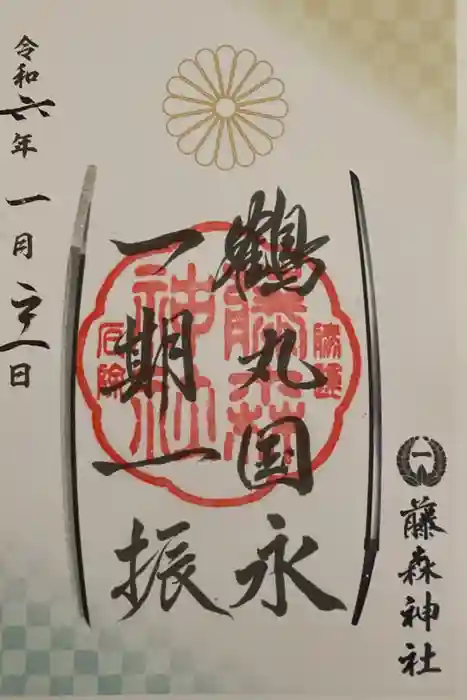 藤森神社
鶴丸国永
一期一振
勝運
藤森
神社
厄除
令和六年一月日